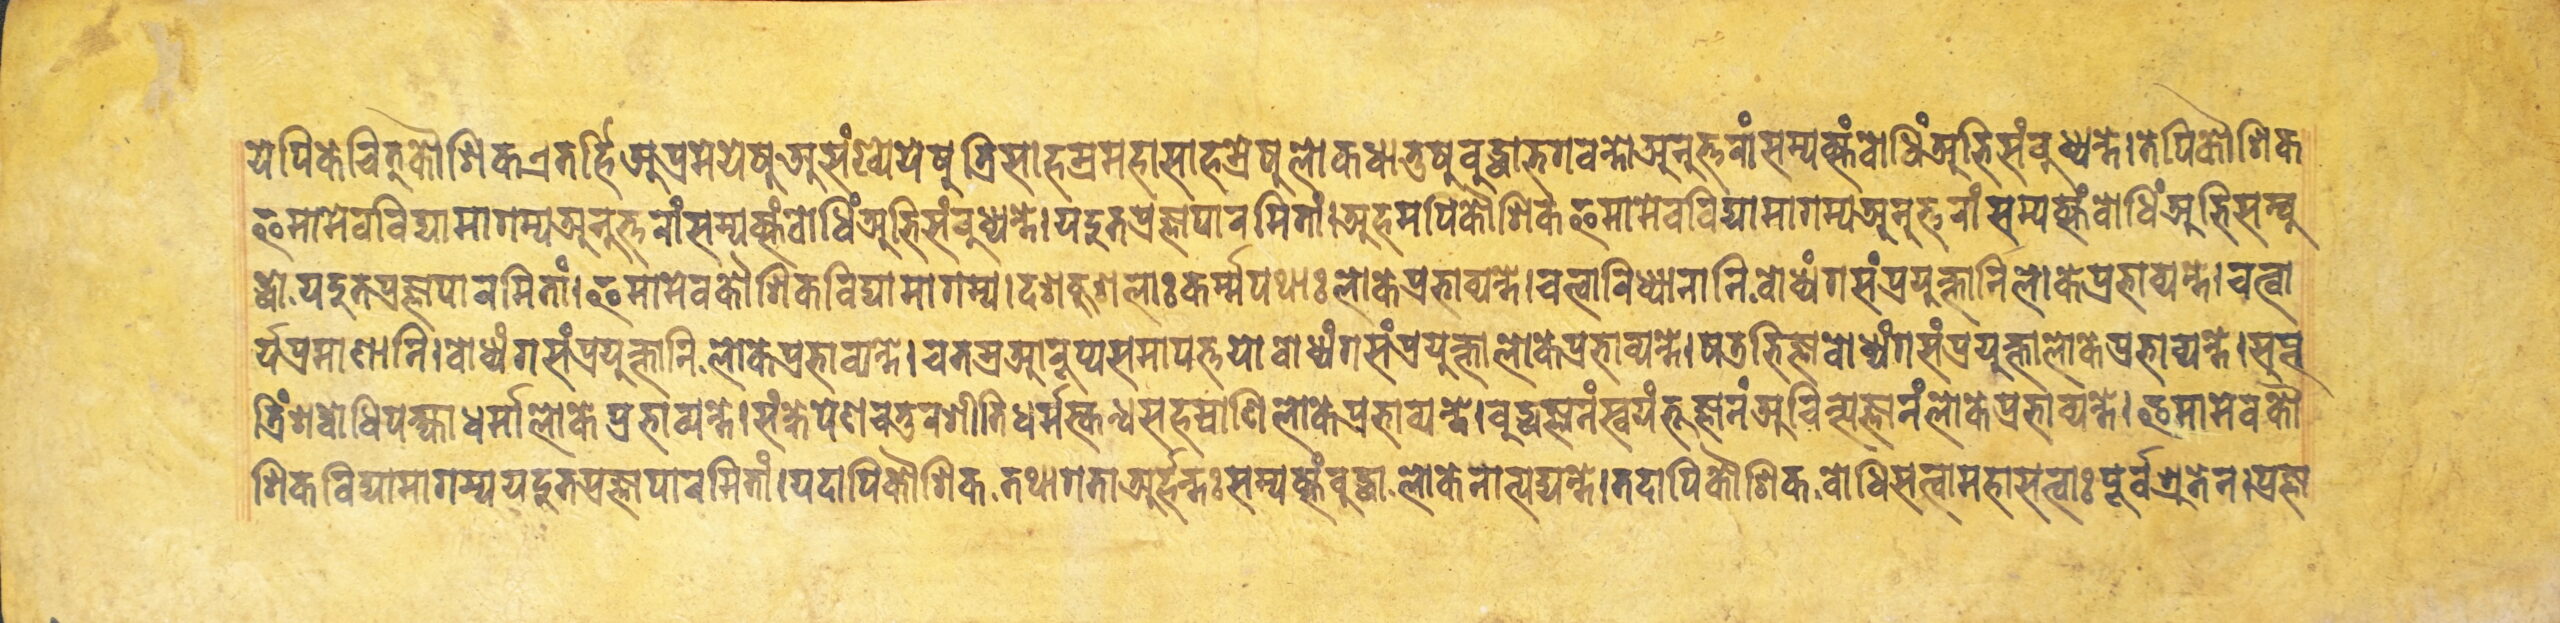 येपिकेचित्कौशिकएतर्हिअप्रमेयेषुअसंख्येयेषुत्रिसाहस्रमहासाहस्रेषुलोकधातुषुबुद्धाभगवन्तोअनुत्तरांसम्यक्संबोधिंअभिसंबुध्यन्ते।तेपिकौशिक
इमामेवविद्यामागम्यअनुत्तरांसम्यक्संबोधिंअभिसंबुध्यन्ते।यदुतप्रज्ञापारमितां।अहमपिकौशिकइमामेवविद्यामागम्यअनुत्तरांसम्यक्संबोधिंअभिसम्बु
द्धो.यदुतप्रज्ञापारमितां।इमामेवकौशिकविद्यामागम्य।दशकुशलाःकर्म्मपथाःलोकेप्रभाव्यन्ते।चत्वारिध्यानानि.बोध्यंगसंप्रयुक्तानिलोकेप्रभाव्यन्ते।चत्वा
र्यप्रमाणानि।बोध्यंगसंप्रयुक्तानि.लोकेप्रभाव्यन्ते।चतस्रआरूप्यसमापत्तयोबोध्यंगसंप्रयुक्तालोकेप्रभाव्यन्ते।षडभिज्ञाबोध्यंगसंप्रयुक्तालोकेप्रभाव्यन्ते।सप्त
त्रिंशद्बोधिपक्ष्याधर्मालोकेप्रभाव्यन्ते।संक्षेपेणचतुरशीतिधर्मस्कन्धसहस्राणिलोकेप्रभाव्यन्ते।बुद्धज्ञानंस्वयंभूज्ञानंअचिन्त्यज्ञानंलोकेप्रभाव्यन्ते।इमामेवकौ
शिकविद्यामागम्ययदुतप्रज्ञापारमितां।यदापिकौशिक.तथागताअर्हन्तःसम्यक्संबुद्धा.लोकेनोत्पद्यन्ते।तदापिकौशिक.बोधिसत्वामहासत्वाःपूर्वश्रुतेन।प्रज्ञा